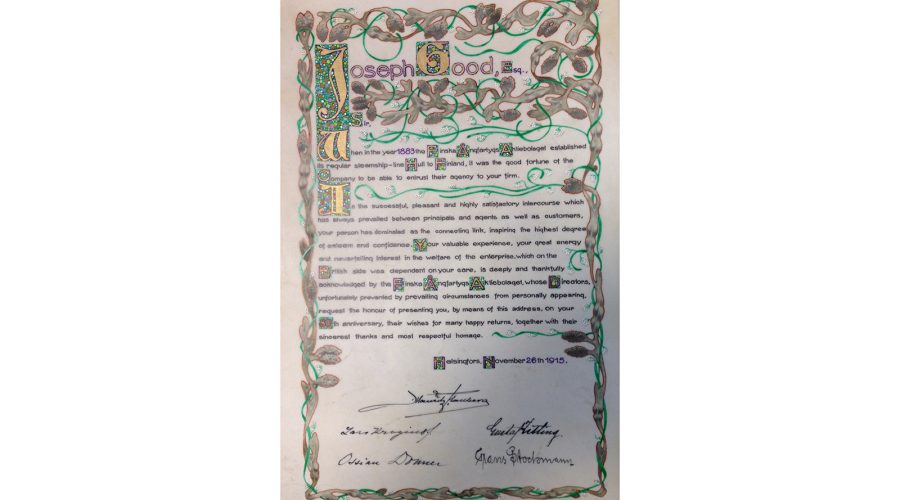 Joseph Good, Esq..
Sir,
When in the year 1883 the Finska Ångfartygs Aktiebolaget established
its regular steamship-line Hull to Finland, it was the good fortune of the
Company to be able to entrust their agency to your firm.
In the successful, pleasant and highly satisfactory intercourse which
has always prevailed between principals and agents as well as customers,
your person has dominated as the connecting link, inspiring the highest degree
of esteem and confidence. Your valuable experience, your great energy
and neverfailing interest in the welfare of the enterprise, which on the
British side was dependent on your care, is deeply and thankfully
acknowledged by the Finska Ångfartygs Aktiebolaget, whose Directors,
unfortunately prevented by prevailing circumstances from personally appearing,
request the honour of presenting you, by means of this address, on your
anniversary, their wishes for many happy returns, together with their
sincerest thanks and most respectful homage.
Helsingfors, November 26th 1915.
Lars Krogius
Ossian Donner
Frans Stockmann